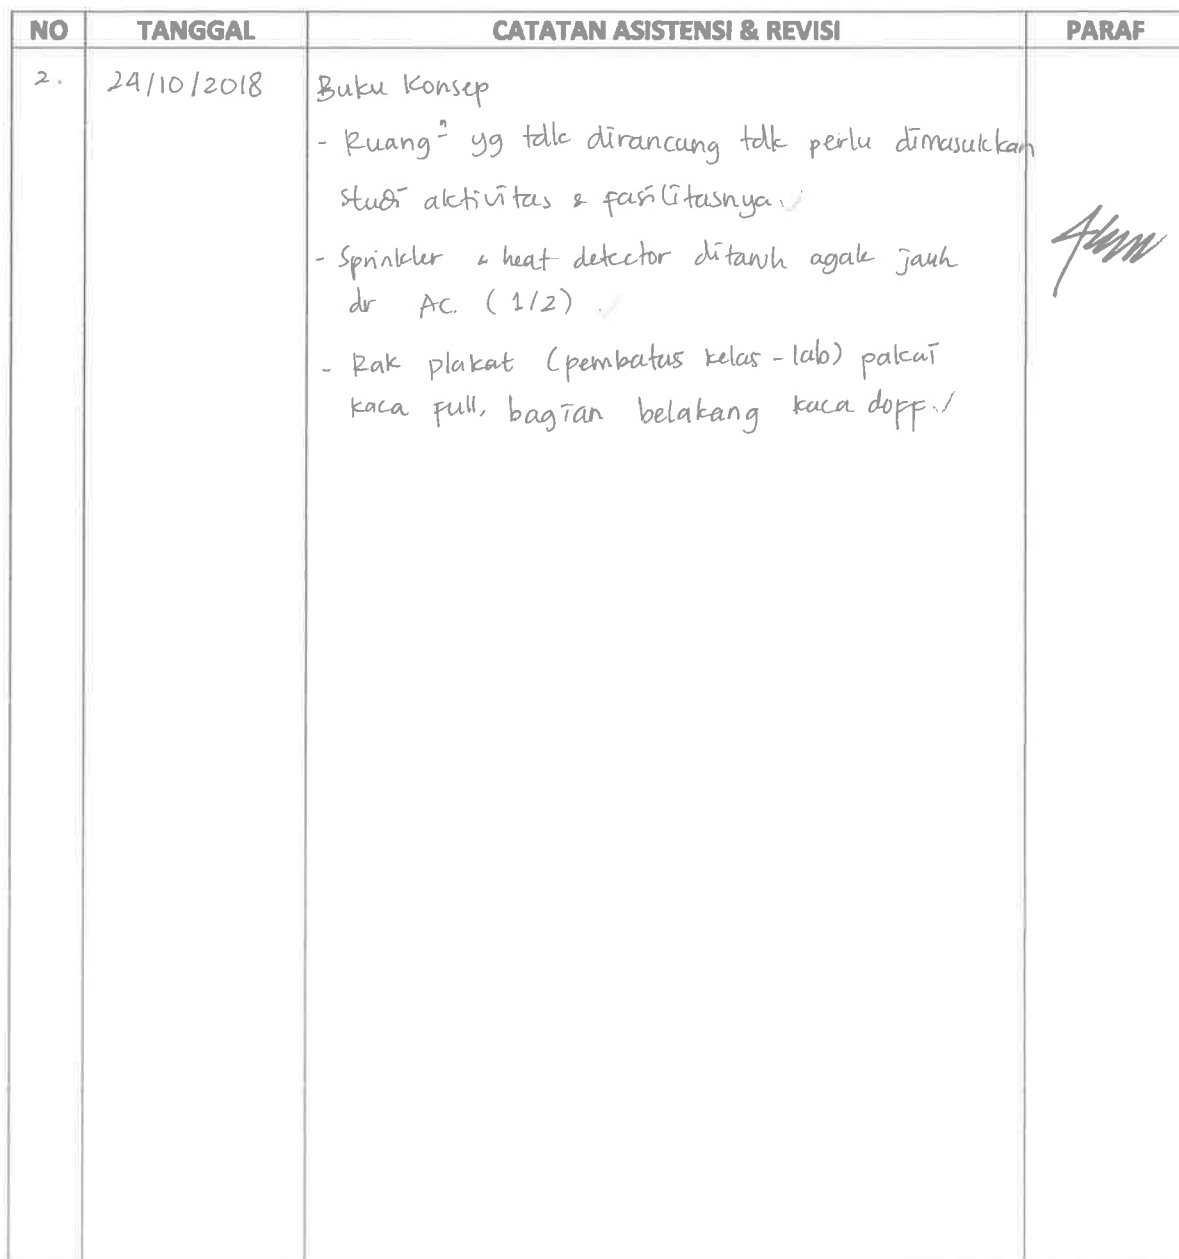 NO TANGGAL CATATAN ASISTENSI & REVISI PARAF
2. 24/10/2018 Buku Konsep
- Ruang² yg tdk dirancang tdk perlu dimasukkan
studi aktivitas & fasilitasnya.
- Sprinkler & heat detector ditaruh agak jauh
dr AC. (1/2)
- Rak plakat (pembatas kelas - lab) pakai
kaca full, bagian belakang kaca doff.